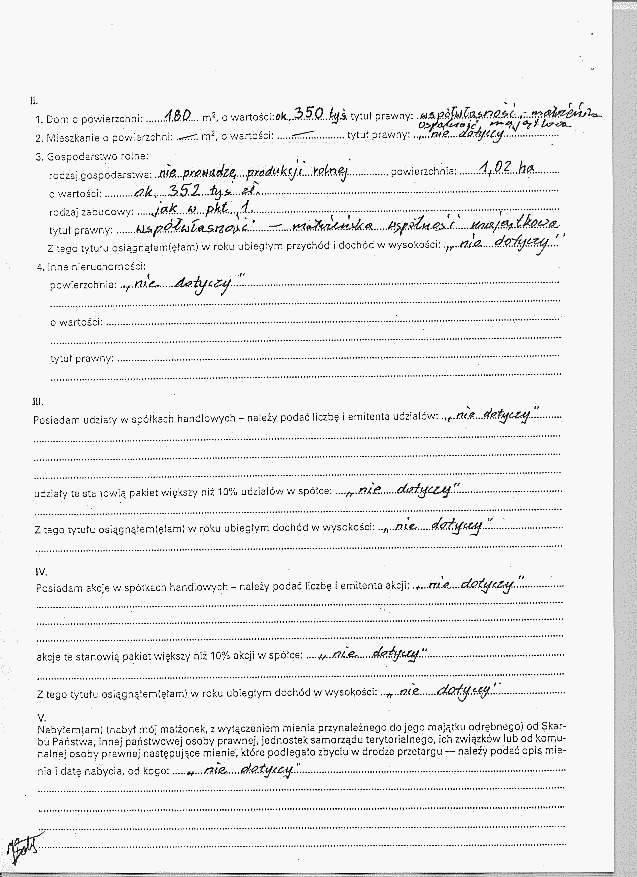 II.
1. Dom o powierzchni: ......180... m², o wartości: ok. 350 tyś tytuł prawny: współwłasność - małżeńska
wspólność majątkowa
2. Mieszkanie o powierzchni: ..—.. m², o wartości: .....—..... tytuł prawny: „nie dotyczy"
3. Gospodarstwo rolne:
rodzaj gospodarstwa: nie prowadzę produkcji rolnej, powierzchnia: 1,02 ha
o wartości: ok. 352 tyś zł.
rodzaj zabudowy: jak w pkt. 1.
tytuł prawny: współwłasność - małżeńska wspólność majątkowa
Z tego tytułu osiągnąłem(ęłam) w roku ubiegłym przychód i dochód w wysokości: „nie dotyczy"
4. Inne nieruchomości:
powierzchnia: „nie dotyczy"
o wartości:
tytuł prawny:
III.
Posiadam udziały w spółkach handlowych – należy podać liczbę i emitenta udziałów: „nie dotyczy"
udziały te stanowią pakiet większy niż 10% udziałów w spółce: „nie dotyczy"
Z tego tytułu osiągnąłem(ęłam) w roku ubiegłym dochód w wysokości: „nie dotyczy"
IV.
Posiadam akcje w spółkach handlowych – należy podać liczbę i emitenta akcji: „nie dotyczy"
akcje te stanowią pakiet większy niż 10% akcji w spółce: „nie dotyczy"
Z tego tytułu osiągnąłem(ęłam) w roku ubiegłym dochód w wysokości: „nie dotyczy"
V.
Nabyłem(am) (nabył mój małżonek, z wyłączeniem mienia przynależnego do jego majątku odrębnego) od Skar-
bu Państwa, innej państwowej osoby prawnej, jednostek samorządu terytorialnego, ich związków lub od komu-
nalnej osoby prawnej następujące mienie, które podlegało zbyciu w drodze przetargu — należy podać opis mie-
nia i datę nabycia, od kogo: „nie dotyczy"